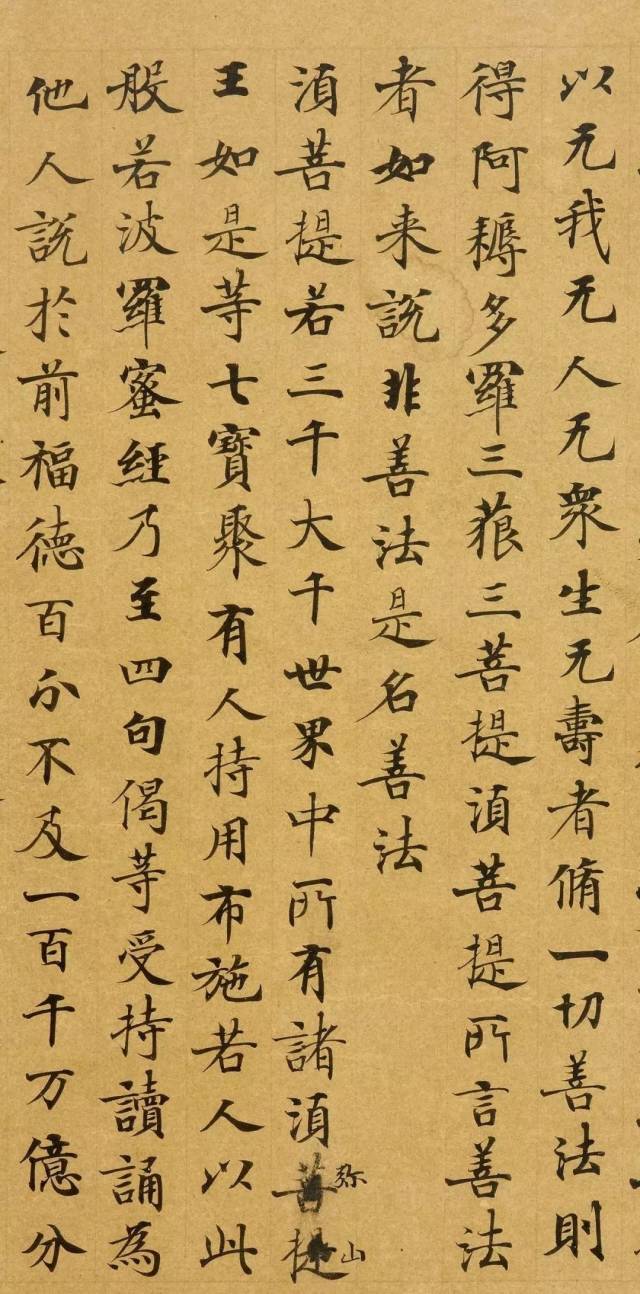 以无我无人无衆生无壽者脩一切善法則
得阿耨多羅三藐三菩提湏菩提所言善法
者如来說非善法是名善法
湏菩提若三千大千世界中所有諸湏菩提
弥山
王如是等七寶聚有人持用布施若人以此
般若波羅蜜經乃至四句偈等受持讀誦為
他人說於前福德百分不及一百千万億分